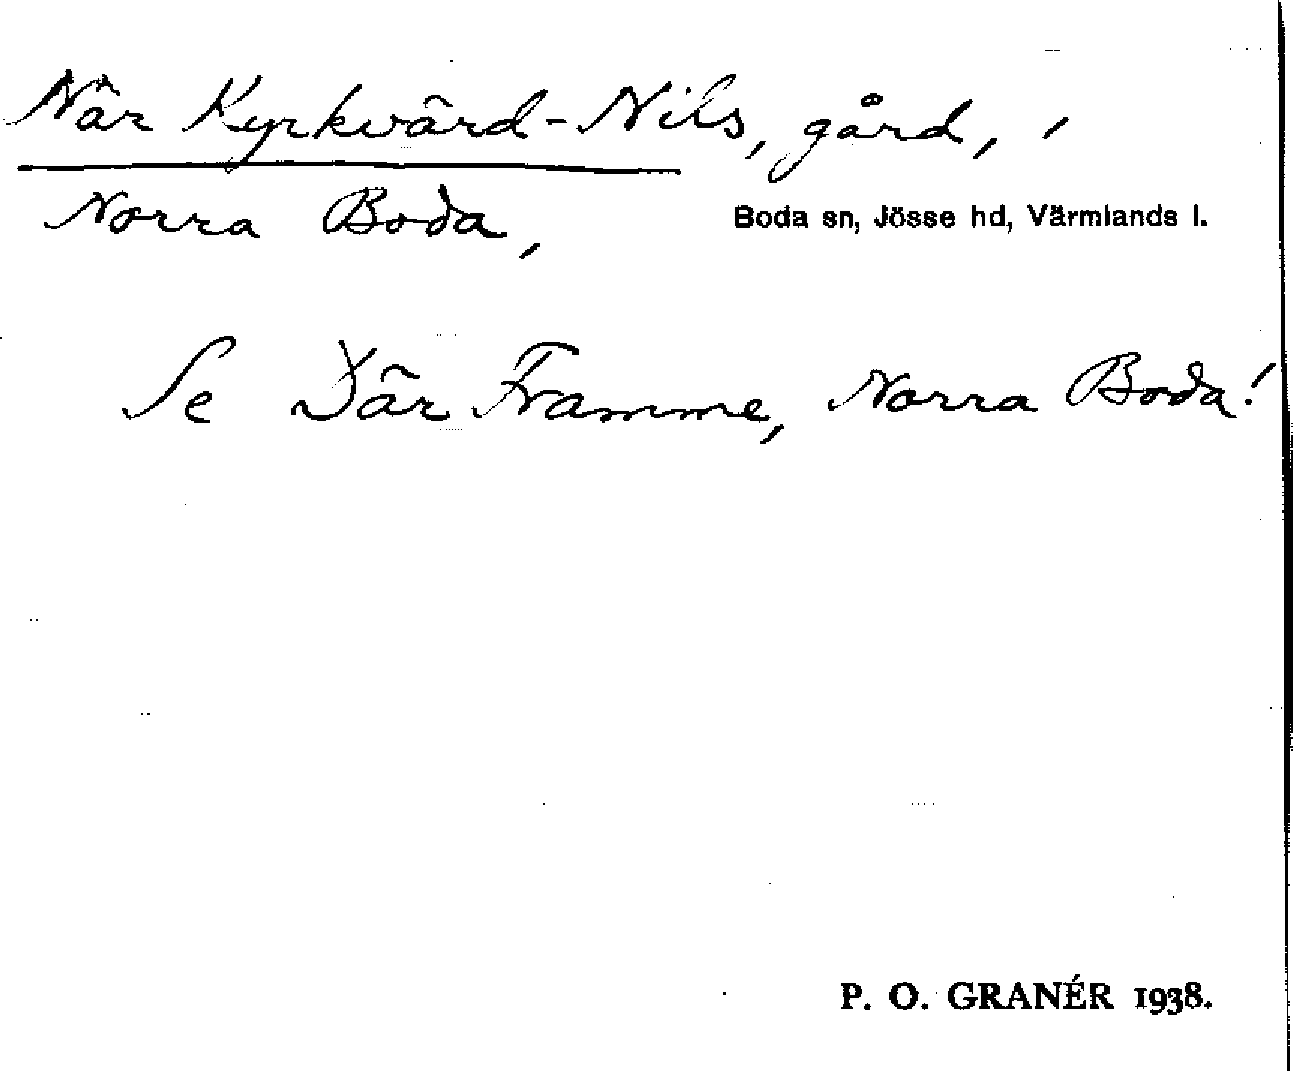 När Kyrkvärd-Nils, gård, i
Norra Boda,
Boda sn, Jösse hd, Värmlands l.
Se Där Framme, Norra Boda!
P. O. GRANÉR 1938.